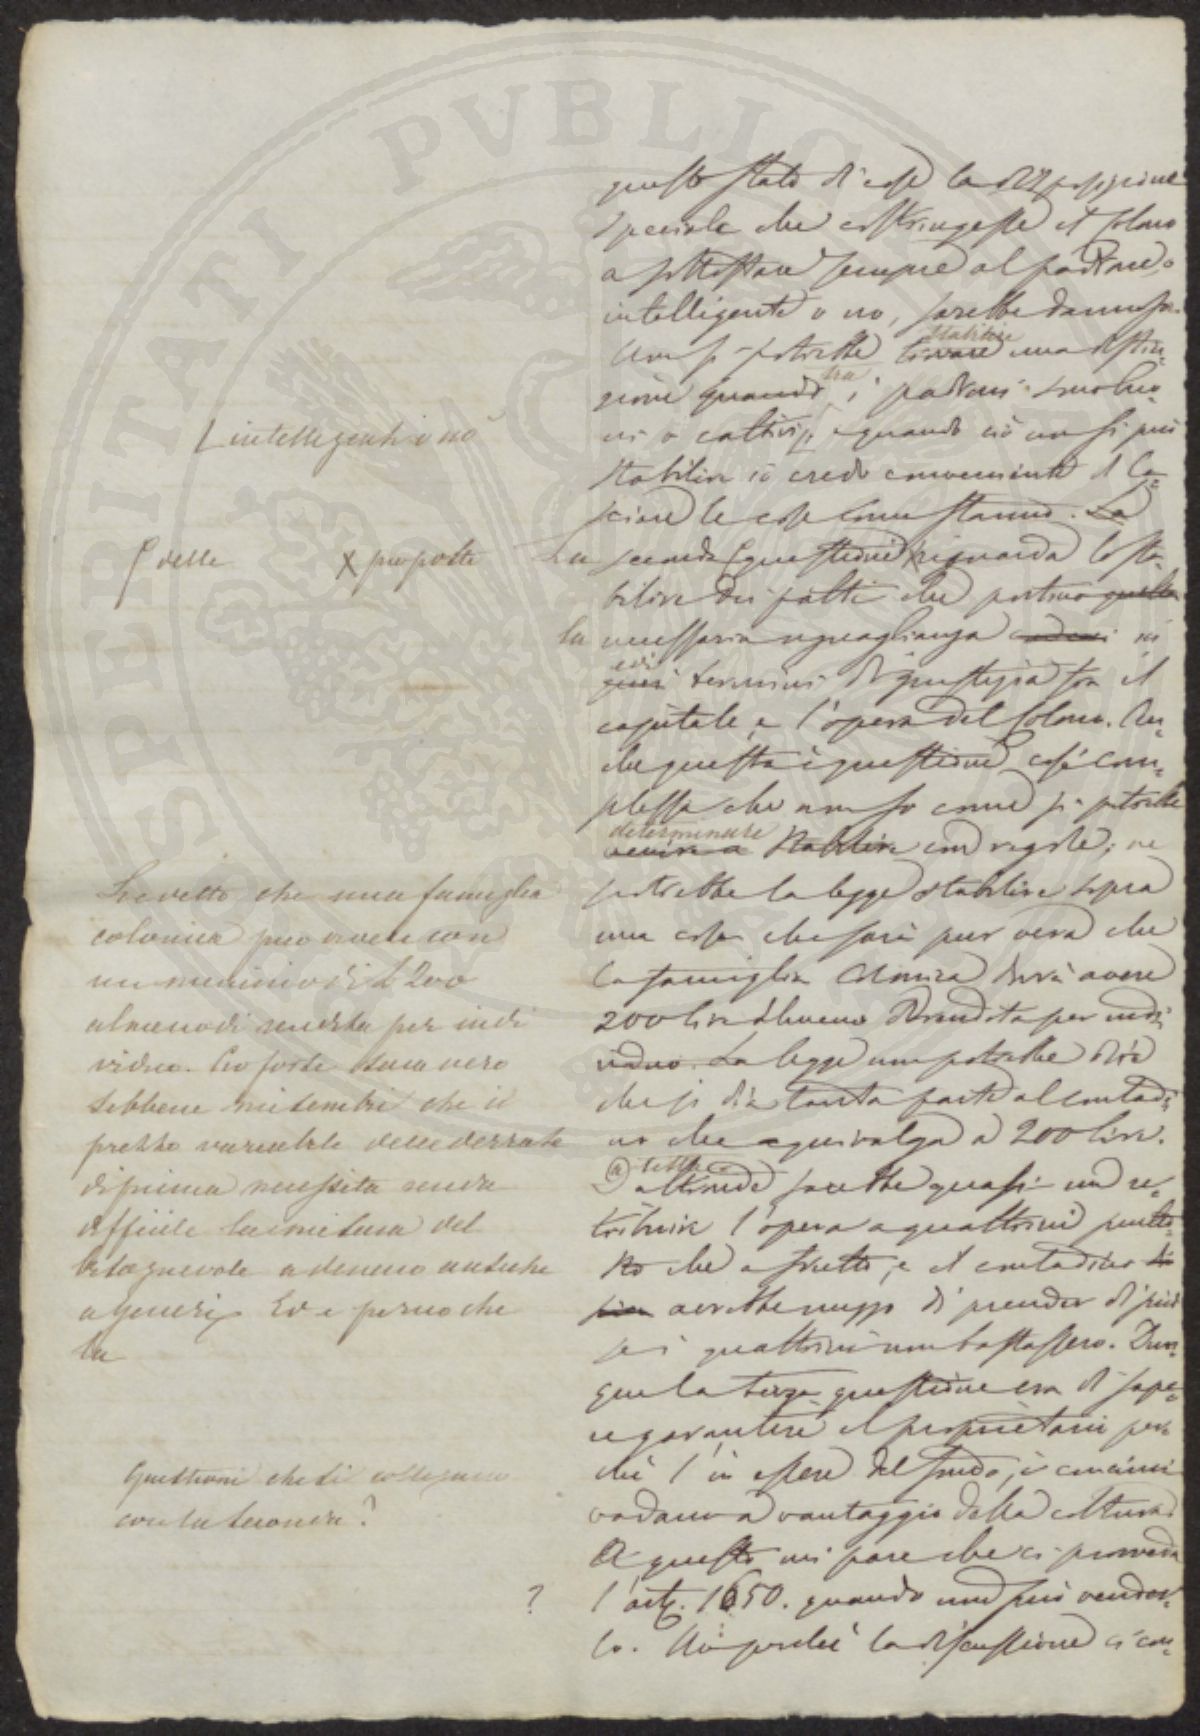 questo stato di cose la disposizione
speciale che costringesse il Colono
a sottostare sempre al padrone, o
intelligente o no, sarebbe dannosa.
Non si potrebbe trovare stabilire una distin-
zione quando tra i padroni buo-
ni o cattivi, e quando ciò non si può
stabilire io credo conveniente di la-
sciare le cose come stanno. La
La seconda questione riguarda lo sta-
bilire dei patti che portino quella
la necessaria uguaglianza in
quei termini di giustizia fra il
capitale, e l'opera del Colono. An-
che questa è questione così com-
plessa che non so come si potrebbe
venire a stabilire determinare con regole; ne
potrebbe la legge stabilire sopra
una cosa che sarà pur vera che
la famiglia colonica dovrà avere
200 lire almeno di rendita per indi
viduo. La legge non potrebbe dire
che si dia tanta parte al contadi-
no che equivalga a 200 lire.
(a) altrimenti sarebbe quasi un re-
tribuire l'opera a quattrini piutto-
sto che a frutto, e il contadino di
più avrebbe mezzo di prender di più
se i quattrini non bastassero. Dun-
que la terza questione era di sape-
re garantire il proprietario per
chè l'in essere del fondo, i concimi
vadano a vantaggio della coltura.
A questo mi pare che ci provveda
? l'art. 1650. quando non può vender-
lo. Ma perchè la discussione ci con-
intelligenti o no
delle
X proposte
Si è detto che una famiglia
colonica può vivere con
un minimo di £ 200
almeno di rendita per indi
viduo. Ciò forse sarà vero
sebbene mi sembri che il
prezzo variabile delle derrate
di prima necessità renda
difficile la misura del
bisognevole a denaro anziche
a generi. Ed è perciò che
la
Questioni che si collegano
con la seconda?